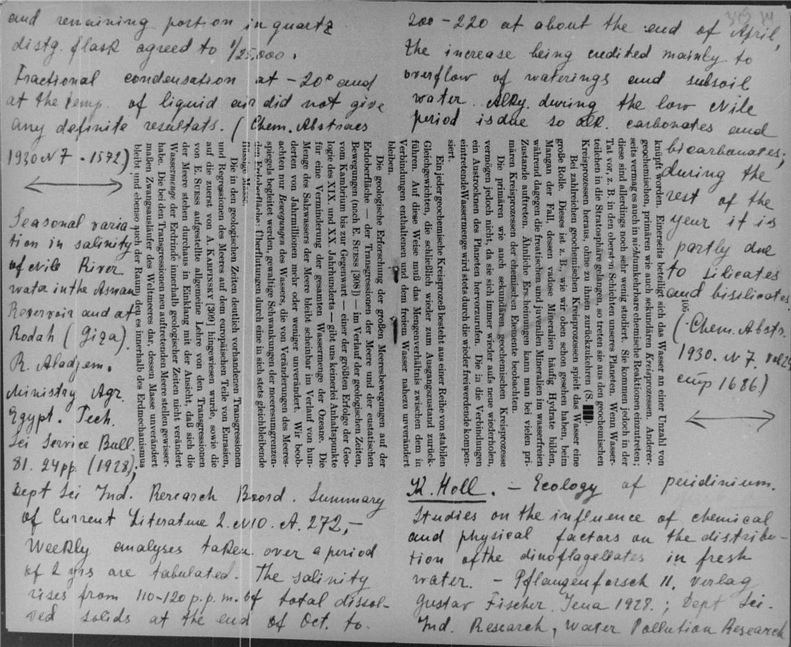 and remaining portion in quartz
distg. flask agreed to 1/25,000.
Fractional condensation at -20° and
at the temp. of liquid air did not give
any definite resultats. (Chem. Abstracs
1930 N7 - 1572)
Seasonal varia
tion in salinity
of Nile River
water in the Asman
Reservoir and at
Rodah (Giza).
R. Aladjem.
Ministry Agr.
Egypt. Tech.
Sci Service Bull.
81. 24pp. (1928);
Dept Sci Ind. Research Board. Summary
of Current Literature 2. N10. A. 272,-
Weekly analyses taken over a period
of 2 yrs are tabulated. The salinity
rises from 110-120 p.p.m. of total dissol-
ved solids at the end of Oct. to
200-220 at about the end of April,
the increase being credited mainly to
overflow of waterings and subsoil
water. Alky. during the low Nile
period is due so alk. carbonates and
bicarbonates;
during the
rest of the
year it is
partly due
to silicates
and bisilicates.
(Chem. Abstr.
1930. N7. Vol 24
cmp 1686)
K. Holl. - Ecology of peridinium.
Studies on the influence of chemical
and physical factors on the distribu-
tion of the dinoflagellates in fresh
water. - Pflanzenforsch 11. Verlag
Gustav Fischer. Jena 1928.; Dept Sci.
Ind. Research, Water Pollution Research
knüpft worden. Einerseits beteiligt sich das Wasser an einer Unzahl von
geochemischen, primären wie auch sekundären Kreisprozessen. Anderer-
seits vermag es auch in nichtumkehrbare chemische Reaktionen einzutreten;
diese sind allerdings noch sehr wenig studiert. Sie kommen jedoch in der
Tat vor, z. B. in den obersten Schichten unseres Planeten. Wenn Wasser-
teilchen in die Stratosphäre gelangen, so treten sie aus den geochemischen
Kreisprozessen heraus, ohne zu ihnen zurückzukehren (S.
Bei zahlreichen geochemischen Kreisprozessen spielt das Wasser eine
große Rolle. Dies ist z. B., wie wir oben schon gesehen haben, beim
Mangan der Fall, dessen vadose Mineralien häufig Hydrate bilden,
während dagegen die freatischen und juvenilen Mineralien im wasserfreien
Zustande auftreten. Ähnliche Erscheinungen kann man bei vielen pri-
mären Kreisprozessen der chemischen Elemente beobachten.
Die primären wie auch sekundären geochemischen Kreisprozesse
vermögen jedoch nicht, da sie sich immer wieder aufs neue wiederholen,
ein Austrocknen des Planeten hervorzurufen. Die in die Verbindungen
eintretende Wassermenge wird stets durch die wieder freiwerdende kompen-
siert.
Ein jeder geochemische Kreisprozeß besteht aus einer Reihe von stabilen
Gleichgewichten, die schließlich wieder zum Ausgangszustand zurück-
führen. Auf diese Weise muß das Mengenverhältnis zwischen dem in
Verbindungen enthaltenen und dem freien Wasser nahezu unverändert
bleiben.
Die geologische Erforschung der großen Meeresbewegungen auf der
Erdoberfläche — der Transgressionen der Meere und der eustatischen
Bewegungen (nach E. SUESS [308]) — im Verlauf der geologischen Zeiten,
vom Kambrium bis zur Gegenwart — einer der größten Erfolge der Geo-
logie des XIX. und XX. Jahrhunderts — gibt uns keinerlei Anhaltspunkte
für eine Verminderung der gesamten Wassermenge der Ozeane. Die
Menge des Salzwassers der Meere bleibt scheinbar im Verlauf von hun-
derten von Jahrmillionen mehr oder weniger unverändert. Wir beob-
achten nur Bewegungen des Wassers, die von Veränderungen des Meeres-
spiegels begleitet werden, gewaltige Schwankungen der meeresumgrenzen-
den Erdoberfläche, Überflutungen durch eine in sich stets gleichbleibende
flüssige Masse.
Die in den geologischen Zeiten deutlich vorhandenen Transgressionen
und Regressionen des Meeres auf dem europäischen Teile von Eurasien,
auf die zuerst von A. KARPINSKY [309] hingewiesen wurde, sowie die
von E. SUESS aufgestellte allgemeine Lehre von den Transgressionen
der Meere stehen durchaus in Einklang mit der Ansicht, daß sich die
Wassermenge der Erdrinde innerhalb geologischer Zeiten nicht verändert
habe. Die bei den Transgressionen neu auftretenden Meere stellen gewisser-
maßen Zwangsausläufer des Weltmeere dar, dessen Masse unverändert
bleibt und ebenso auch der Raum, den es innerhalb des Erdmechanismus